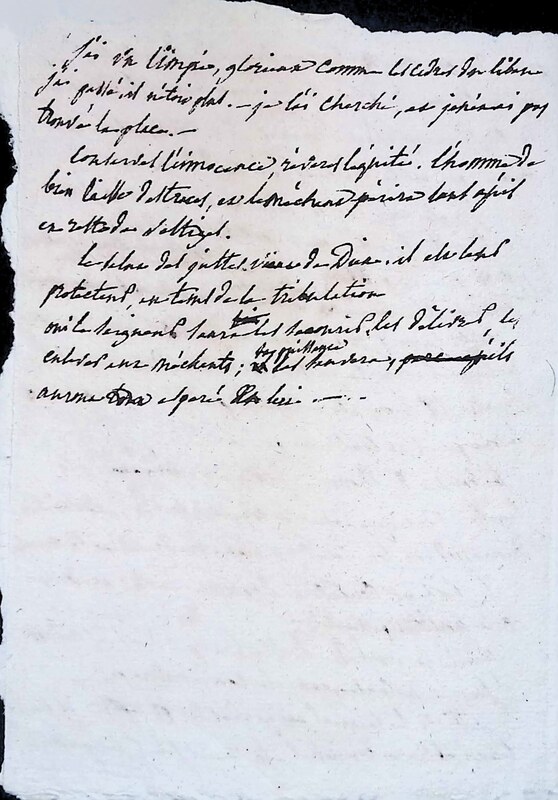 j'ai vu l'impie, glorieux comme les cedres du liban
j'ai passé il n'etoit plus. — je l'ai cherché, et je n'ai pas
trouvé la place. —
Conservés l'innocence, l'équité. l'homme de
bien laisse des traces, et le méchant périra sans qu'il
en reste de
le salut des justes vient de Dieu. il est leur
protecteur, en tems de la tribulation
oui le seigneur saura les secourir, les délivrer, les
enlever aux méchants; les sauvera, parce qu'ils
auront espéré en lui —